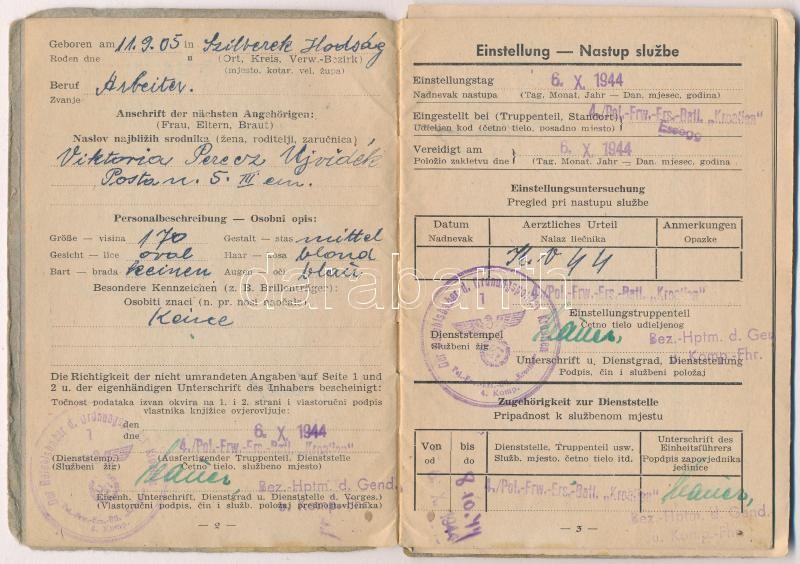 Geboren am 11.9.05 in Szilberek Hodság
Roden dne u (Ort, Kreis, Verw.-Bezirk)
(mjesto. kotar. vel. župa)
Beruf Arbeiter.
Zvanje
Anschrift der nächsten Angehörigen:
(Frau, Eltern, Braut)
Naslov najbližih srodnika (žena, roditelji, zaručnica)
Viktoria Perecz Ujvidék
Posta n. 5. III em.
Personalbeschreibung — Osobni opis:
Größe — visina 170 Gestalt — stas mittel
Gesicht — lice oval Haar — kosa blond
Bart — brada keinen Augen — oči blau
Besondere Kennzeichen (z. B. Brillenträger):
Osobiti znaci (n. pr. nosi naočale)
Keine
Die Richtigkeit der nicht umrandeten Angaben auf Seite 1 und
2 u. der eigenhändigen Unterschrift des Inhabers bescheinigt:
Točnost podataka izvan okvira na 1. i 2. strani i vlastoručni podpis
vlastnika knjižice ovjerovljuje:
den
dne 6. X. 1944
4./Pol.-Frw.-Ers.-Batl. „Kroatien"
(Dienststemp.) (Ausfertigender Truppenteil, Dienststelle
(Službeni žig) Četno tielo, službeno mjesto)
Bez.-Hptm. d. Gend.
Eigenh. Unterschrift, Dienstgrad u. Dienststelle d. Vorges.)
(Vlastoručni podpis, čin i služb. položaj predpostavljenika)
— 2 —
Einstellung — Nastup službe
Einstellungstag 6. X. 1944
Nadnevak nastupa (Tag. Monat. Jahr — Dan. mjesec. godina)
4./Pol.-Frw.-Ers.-Batl. „Kroatien"
Eingestellt bei (Truppenteil, Standort)
Udieljen kod (četno tielo, posadno mjesto) Essegg
Vereidigt am 6. X. 1944
Položio zakletvu dne (Tag. Monat. Jahr — Dan. mjesec. godina)
Einstellungsuntersuchung
Pregled pri nastupu službe
Datum Aerztliches Urteil Anmerkungen
Nadnevak Nalaz liečnika Opazke
4./Pol.-Frw.-Ers.-Batl. „Kroatien"
Einstellungstruppenteil
Četno tielo udieljenog
Dienststempel
Službeni žig
Bez.-Hptm. d. Gend.
u. Komp.-Fhr.
Unterschrift u. Dienstgrad, Dienststellung
Podpis, čin i službeni položaj
4. Komp.
Zugehörigkeit zur Dienststelle
Pripadnost k službenom mjestu
Von bis Dienststelle, Truppenteil usw. Unterschrift des Einheitsführers
od do Služb. mjesto. četno tielo itd. Popdpis zapovjednika
jedinice
8.10.44 4./Pol.-Frw.-Ers.-Batl. „Kroatien"
Bez.-Hptm. d. Gend.
u. Komp.-Fhr.
— 3 —
darabanth